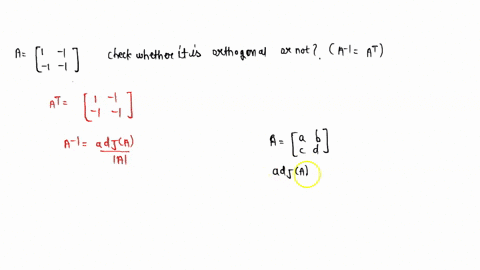 A = [ 1 -1 -1 -1 ] check whether it is orthogonal or not? (A-1 = AT)
AT = [ 1 -1 -1 -1 ]
A-1 = adj(A) / |A|
A = [ a b c d ]
adj(A)